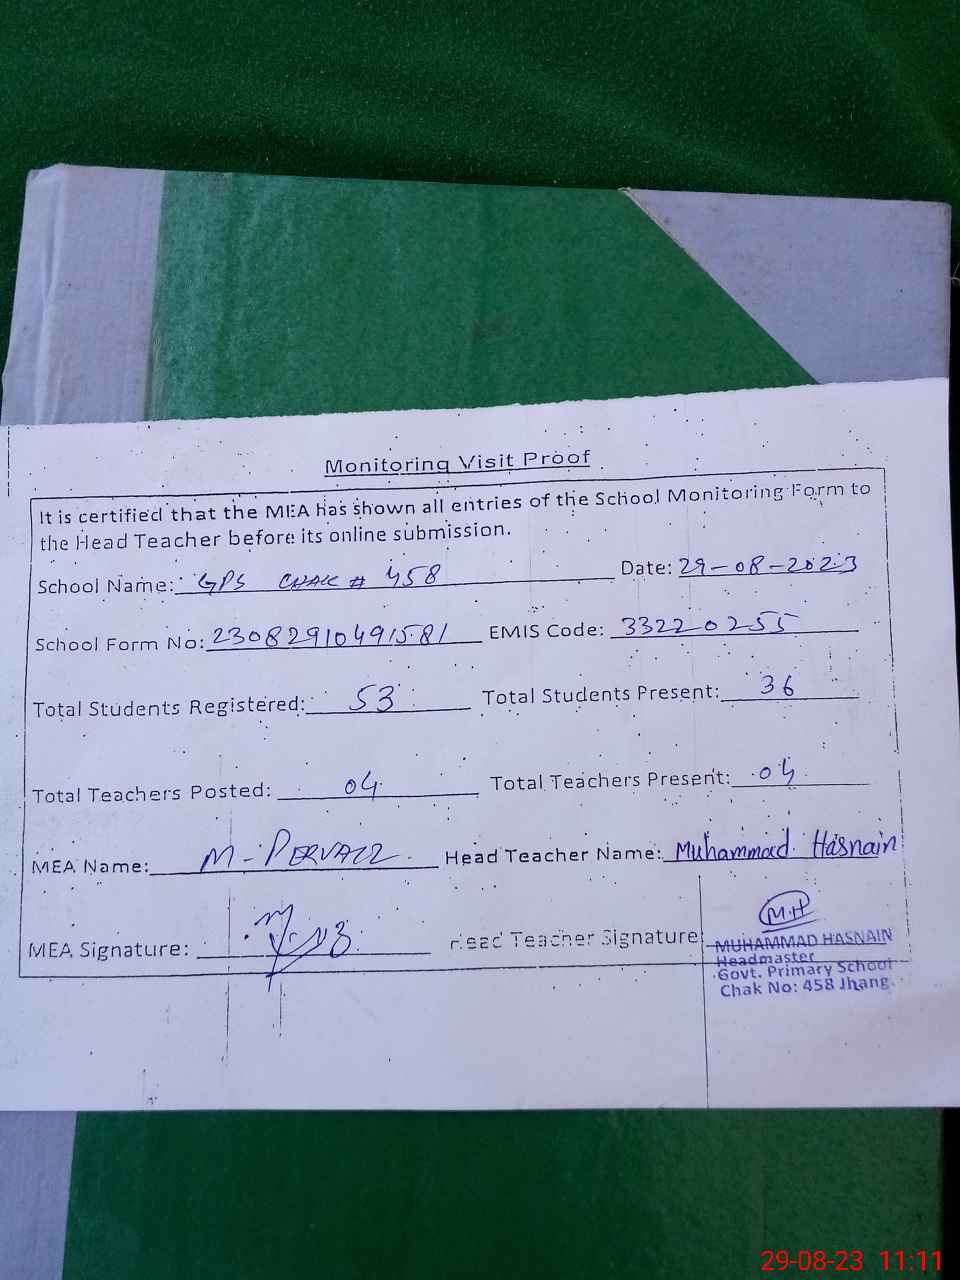 Monitoring Visit Proof
It is certified that the MEA has shown all entries of the School Monitoring Form to
the Head Teacher before its online submission.
School Name: GPS CHAK # 458 Date: 29-08-2023
School Form No: 23082910491581 EMIS Code: 33220255
Total Students Registered: 53 Total Students Present: 36
Total Teachers Posted: 04 Total Teachers Present: 04
MEA Name: M-PERVAIZ Head Teacher Name: Muhammad Hasnain
MEA Signature: Head Teacher Signature
M.H
MUHAMMAD HASNAIN
Headmaster
Govt. Primary School
Chak No: 458 Jhang.
29-08-23 11:11